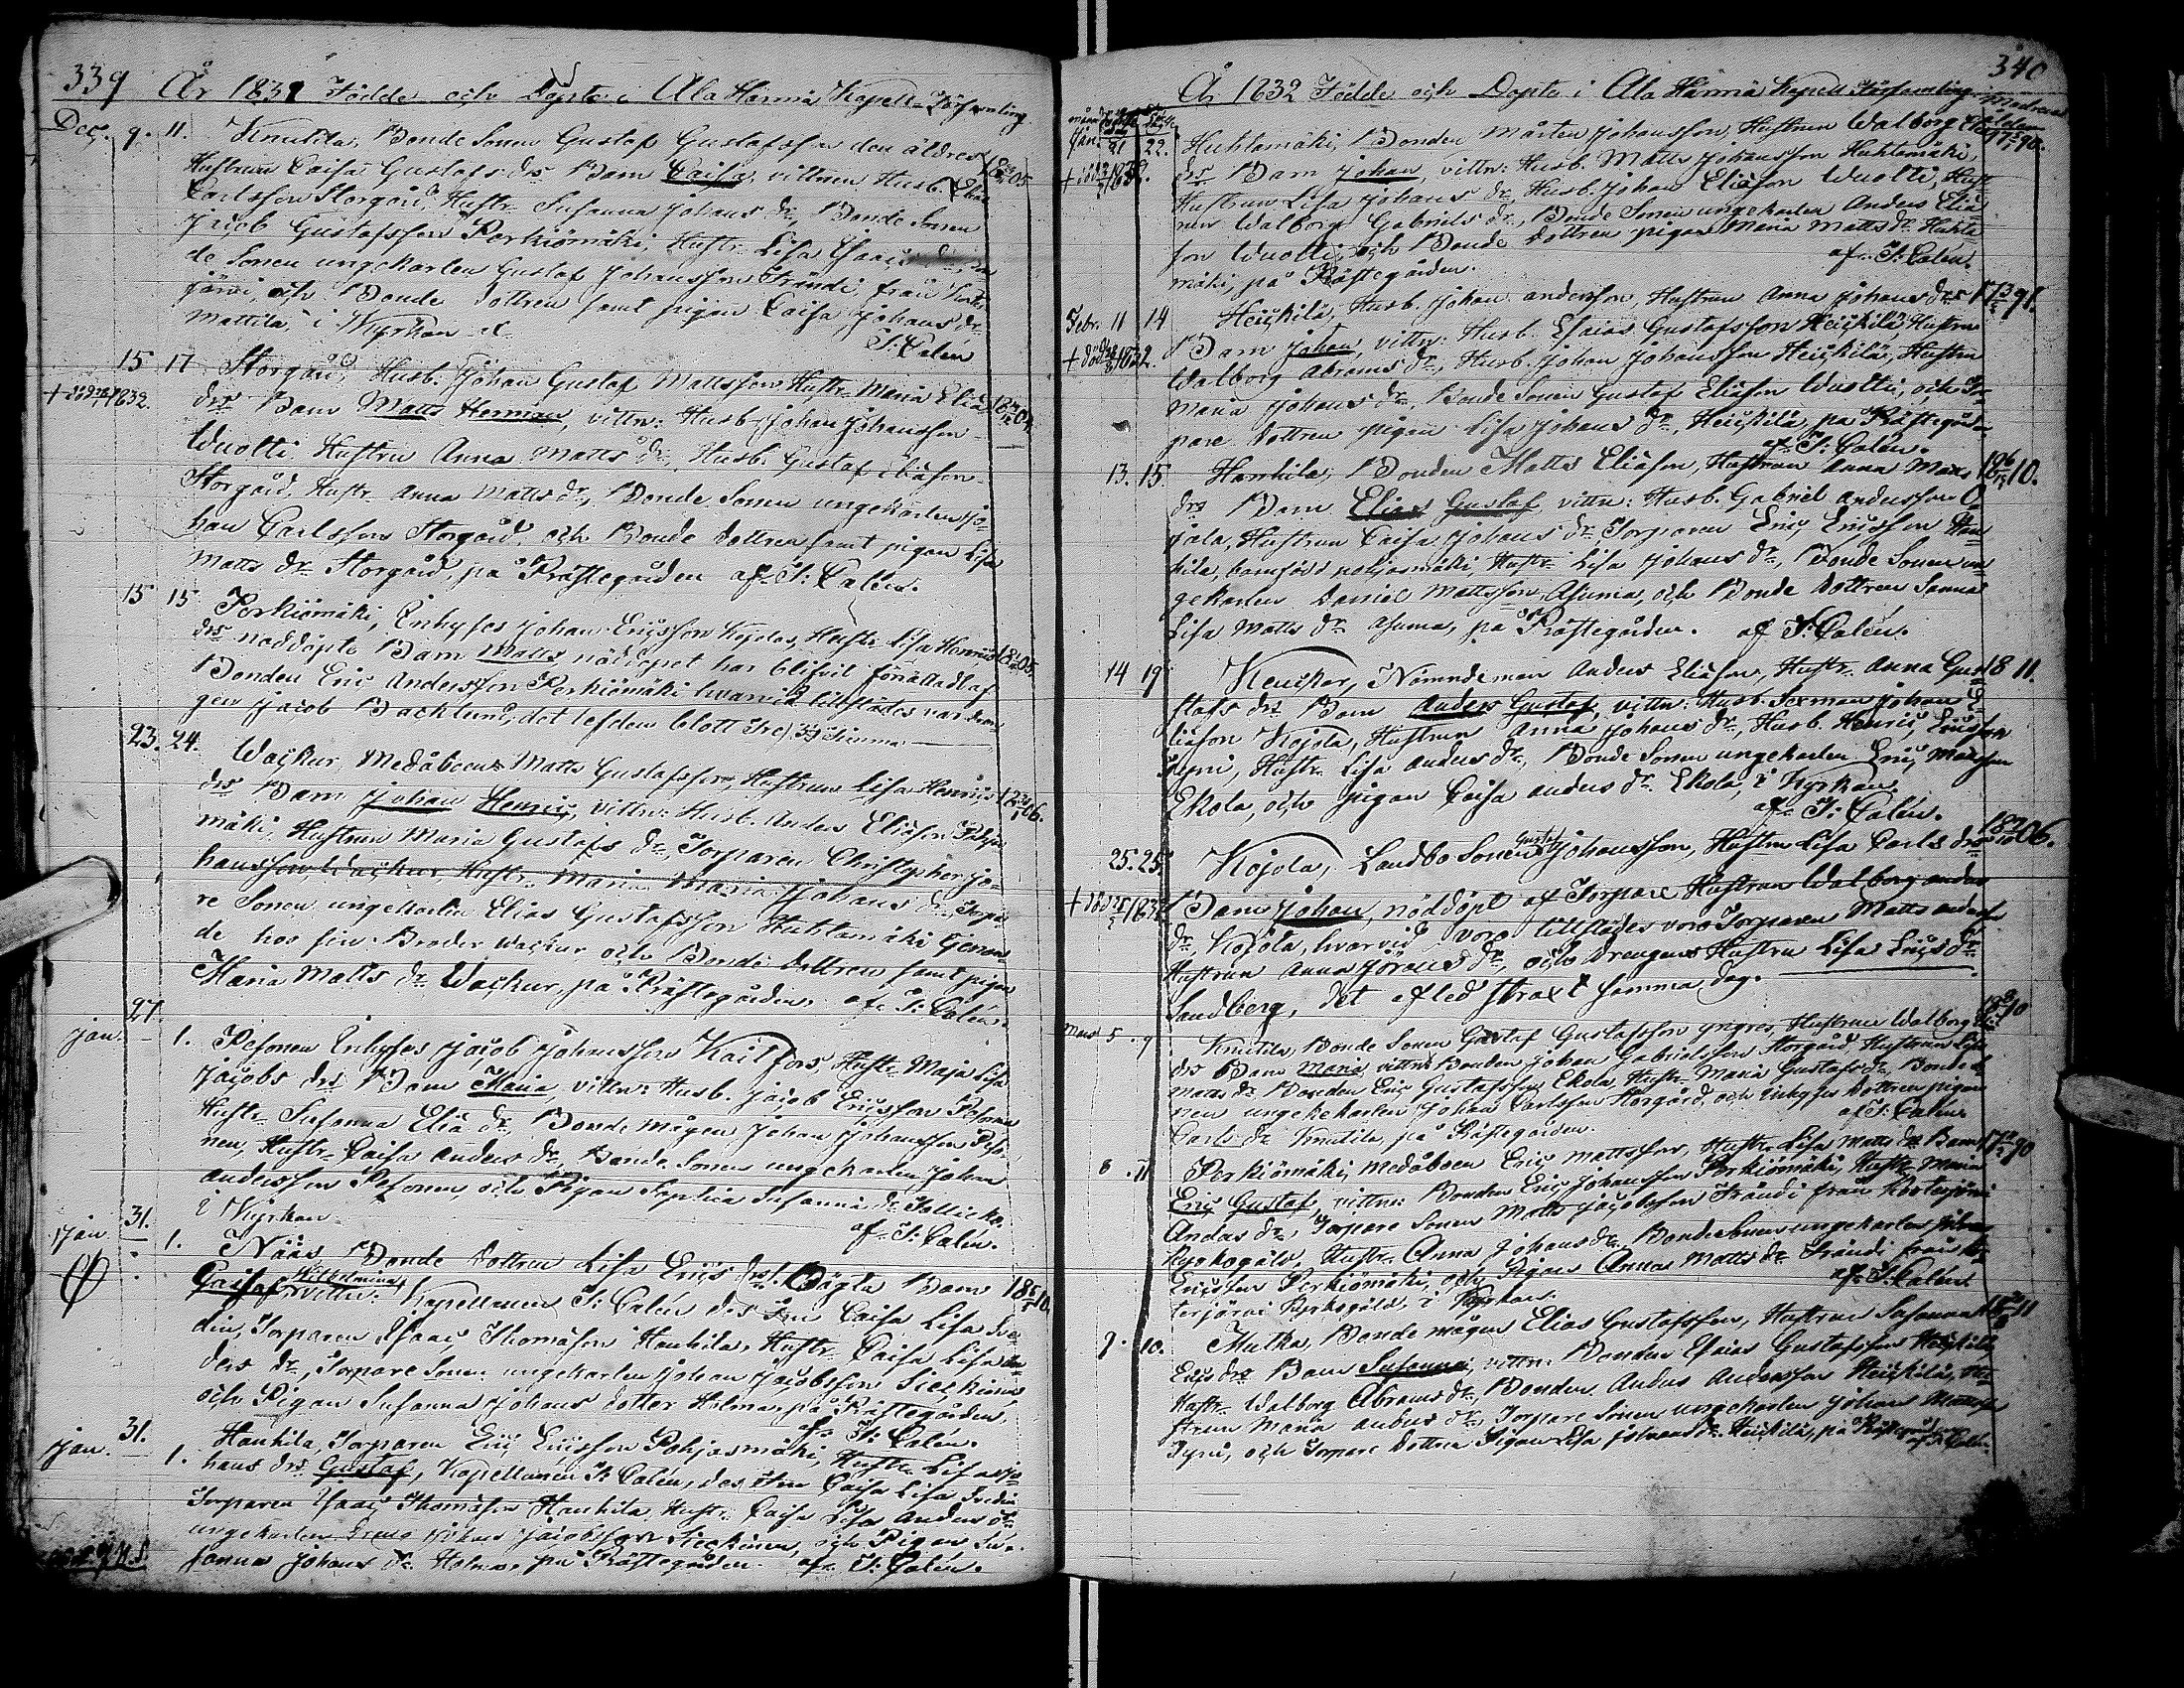 339 År 1831 Födde och Döpte i Ala Härmä Kapell Församling
Dec. 9. 11. Knutila, Bonde Sonen Gustaf Gustafsson den äldres
Hustrun Caisa Gustafs dr Barn Caisa, vittnen Husb. Elias
Carlsson Storgård, Hustr. Susanna Johans dr, Bonde Sonen
Jacob Gustafsson Perkiömäki, Hustr. Lisa Isaacs
de Sonen ungekarlen Gustaf Johansson Frändi från
järvi, och Bonde dottren samt pigan Caisa Johans dr
Mattila, i Kyrkan af
I: Calén
15 17 Storgård, Husb. Johan Gustaf Mattsson Hustr. Maria Eliæ
+ död 1832.
drs Barn Matts Herman, vittn: Husb. Johan Johansson
Wuolti Hustru Anna Matts dr, Husb. Gustaf Eliæson
Storgård, Hustr. Anna Matts dr, Bonde Sonen ungekarlen Jo-
han Carlsson Storgård, och Bonde dottren samt pigan Lisa
Matts dr Storgård, på Prästegården af I: Calén.
15 15 Perkiömäki, Inhyses Johan Ericsson Kojolas, Hustr Lisa Henrics
drs nöddöpte Barn Matts, nöddopet har blifvit förrättadt af
Bonden Eric Andersson Perkiömäki hvarvid tillstädes var dren-
gen Jacob Backlund, det lefden blott Tre) 3) Timma
23. 24. Wackur, Medåboen Matts Gustafsson, Hustrun Lisa Henrics
drs Barn Johan Henric, vittn: Husb. Anders Eliæson
mäki, Hustrun Maria Gustafs dr, Torparen Christopher Jo-
hansson Wackur, Hustr. Maria Maria Johans dr
re Sonen ungekarlen Elias Gustafsson Huhtamäki
de hos sin Broder Wackur och Bonde dottren samt pigan
Maria Matts dr Wackur, på Prästegården af I: Calén.
27.
Jan. 1. Pesonen Inhyses Jacob Johansson Kailfors, Hustr. Maja Lisa
Jacobs drs Barn Maria, vittn: Husb. Jacob Ericsson Pesonen
Hustr. Susanna Eliæ dr, Bonde mågen Johan Johansson Peso-
nen, Hustr. Caisa Anders dr, Bonde Sonen ungekarlen Johan
Andersson Pesonen, och Pigan Sophia Susanna dr
i Kyrkan af I: Calén.
31.
Jan. 1. Nääs Bonde Dottren Lisa Erics drs Oägta Barn
Caisa Wilhelmina vittn: Kapellanen I: Calén des Fru Caisa Lisa
din, Torparen Isaac Thomasson Hanhila, Hustr. Caisa Lisa An-
ders dr, Torpare Sonen ungekarlen Johan Jacobsson
och Pigan Susanna Johans dotter Holma, på Prästegården,
af I: Calén.
31.
Jan. 1. Hanhila, Torparen Eric Ericsson Pohjasmäki, Hustr. Lisa Jo-
hans drs Gustaf, Kapellanen I: Calén, des Fru Caisa Lisa
Torparen Isaac Thomasson Hanhila, Hustr. Caisa Lisa Anders dr
ungekarlen Johan Jacobsson och Pigan Su-
sanna Johans dr Holma, på Prästegården. af I: Calén.
340
År 1832 Födde och Döpte i Ala Härmä Kapell Församling
Jan. 21 22. Huhtamäki, Bonden Mårten Johansson, Hustrun Walborg
+ död 1832.
drs Barn Johan, vittn: Husb. Matts Johansson Huhtamäki,
Hustrun Lisa Johans dr, Husb. Johan Eliæson Wuolti, Hust-
run Walborg Gabriels dr, Bonde Sonen ungekarlen Anders Eliæ-
son Wuolti, och Bonde Dottren pigan Maria Matts dr Huhta-
mäki, på Prästegården. af I: Calén.
Febr. 11 14 Heickilä, Husb. Johan Andersson, Hustrun Anna Johans drs
+ död 1832.
Barn Johan, vittn: Husb. Esaias Gustafsson Heickilä, Hustru
Walborg Abrams dr, Husb. Johan Johansson Heickilä, Hustrun
Maria Johans dr, Bonde Sonen Gustaf Eliæson Wuolti, och Tor-
pare dottren pigan Lisa Johans dr, Heickilä, på Prästegården
af I: Calén.
13. 15. Hanhila, Bonden Matts Eliæson, Hustrun Anna Matts
drs Barn Elias Gustaf, vittn: Husb. Gabriel Andersson O-
jala, Hustrun Caisa Johans dr Torparen Eric Ericsson Han-
hila, Pohjasmäki, Hustr. Lisa Johans dr, Bonde Sonen un-
gekarlen Daniel Mattsson Asuma, och Bonde dottren Sanna
Lisa Matts dr Asuma, på Prästegården. af I: Calén.
14 19 Keuckar, Nämndeman Anders Eliæson, Hustr. Anna Gus-
tafs drs Barn Anders Gustaf, vittn: Husb. Sexman Johan E-
liæson Kojola, Hustrun Anna Johans dr, Husb. Henric Ericsson
Hustr. Lisa Anders dr, Bonde Sonen ungekarlen Eric
Ekola, och pigan Caisa Anders dr Ekola, i Kyrkan.
af I: Calén.
25. 25. Kojola, Landbo Sonen Gust: Johansson, Hustrun Lisa Carls drs
+ död 1832
Barn Johan, nöddöpt af Torpare Hustrun Walborg Anders
dr, Kojola, hvarvid voro tillstädes voro Torparen Matts
Hustrun Anna Jörans dr, och drengens Hustru Lisa Erics dr
Sandberg, det afled straxt samma dag.
Mars 5. 9 Knutila, Bonde Sonen Gustaf Gustafsson yngres, Hustrun Walborg
drs Barn Maria vittn: Bonden Johan Gabrielsson Storgård, Hustrun Lisa
Matts dr Bonden Eric Gustafsson Ekola, Hustr. Maria Gustafs dr, Bonde So-
nen ungekarlen Johan Carlsson Storgård, och Inhyses Dottren pigan
Carls dr Knutila, på Prästegården. af I: Calén
8. 11 Perkiömäki, Medåboen Eric Mattsson, Hustr. Lisa Matts drs Barn
Eric Gustaf, vittn: Bonden Eric Johansson Perkiömäki, Hustr Maria
Anders dr, Torpare Sonen Matts Jacobsson Frändi från Kortesjärvi
Kyrkogäld, Hustr. Anna Johans dr, Bonde Sonen ungekarlen Johan
Ericsson Perkiömäki, och Pigan Anna Matts dr Frändi från Kor-
tesjärvi Kyrkogäld, i Kyrkan. af I: Calén
9. 10. Mutka, Bonde mågen Elias Gustafsson, Hustrun Susanna
Erics drs Barn Susanna, vittn: Bonden Esaias Gustafsson Heickilä,
Hustr. Walborg Abrams dr Bonden Anders Andersson Heickilä, Hu-
strun Maria dr, Torpare Sonen ungekarlen Johan Mattsson
och Torpare dottren Pigan Lisa Johans dr Heickilä, på Prästegården
af I: Calén